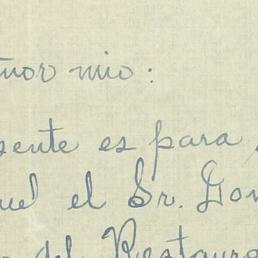 ñor mio:
sente es para
uel el Sr. Gon
del Restaura